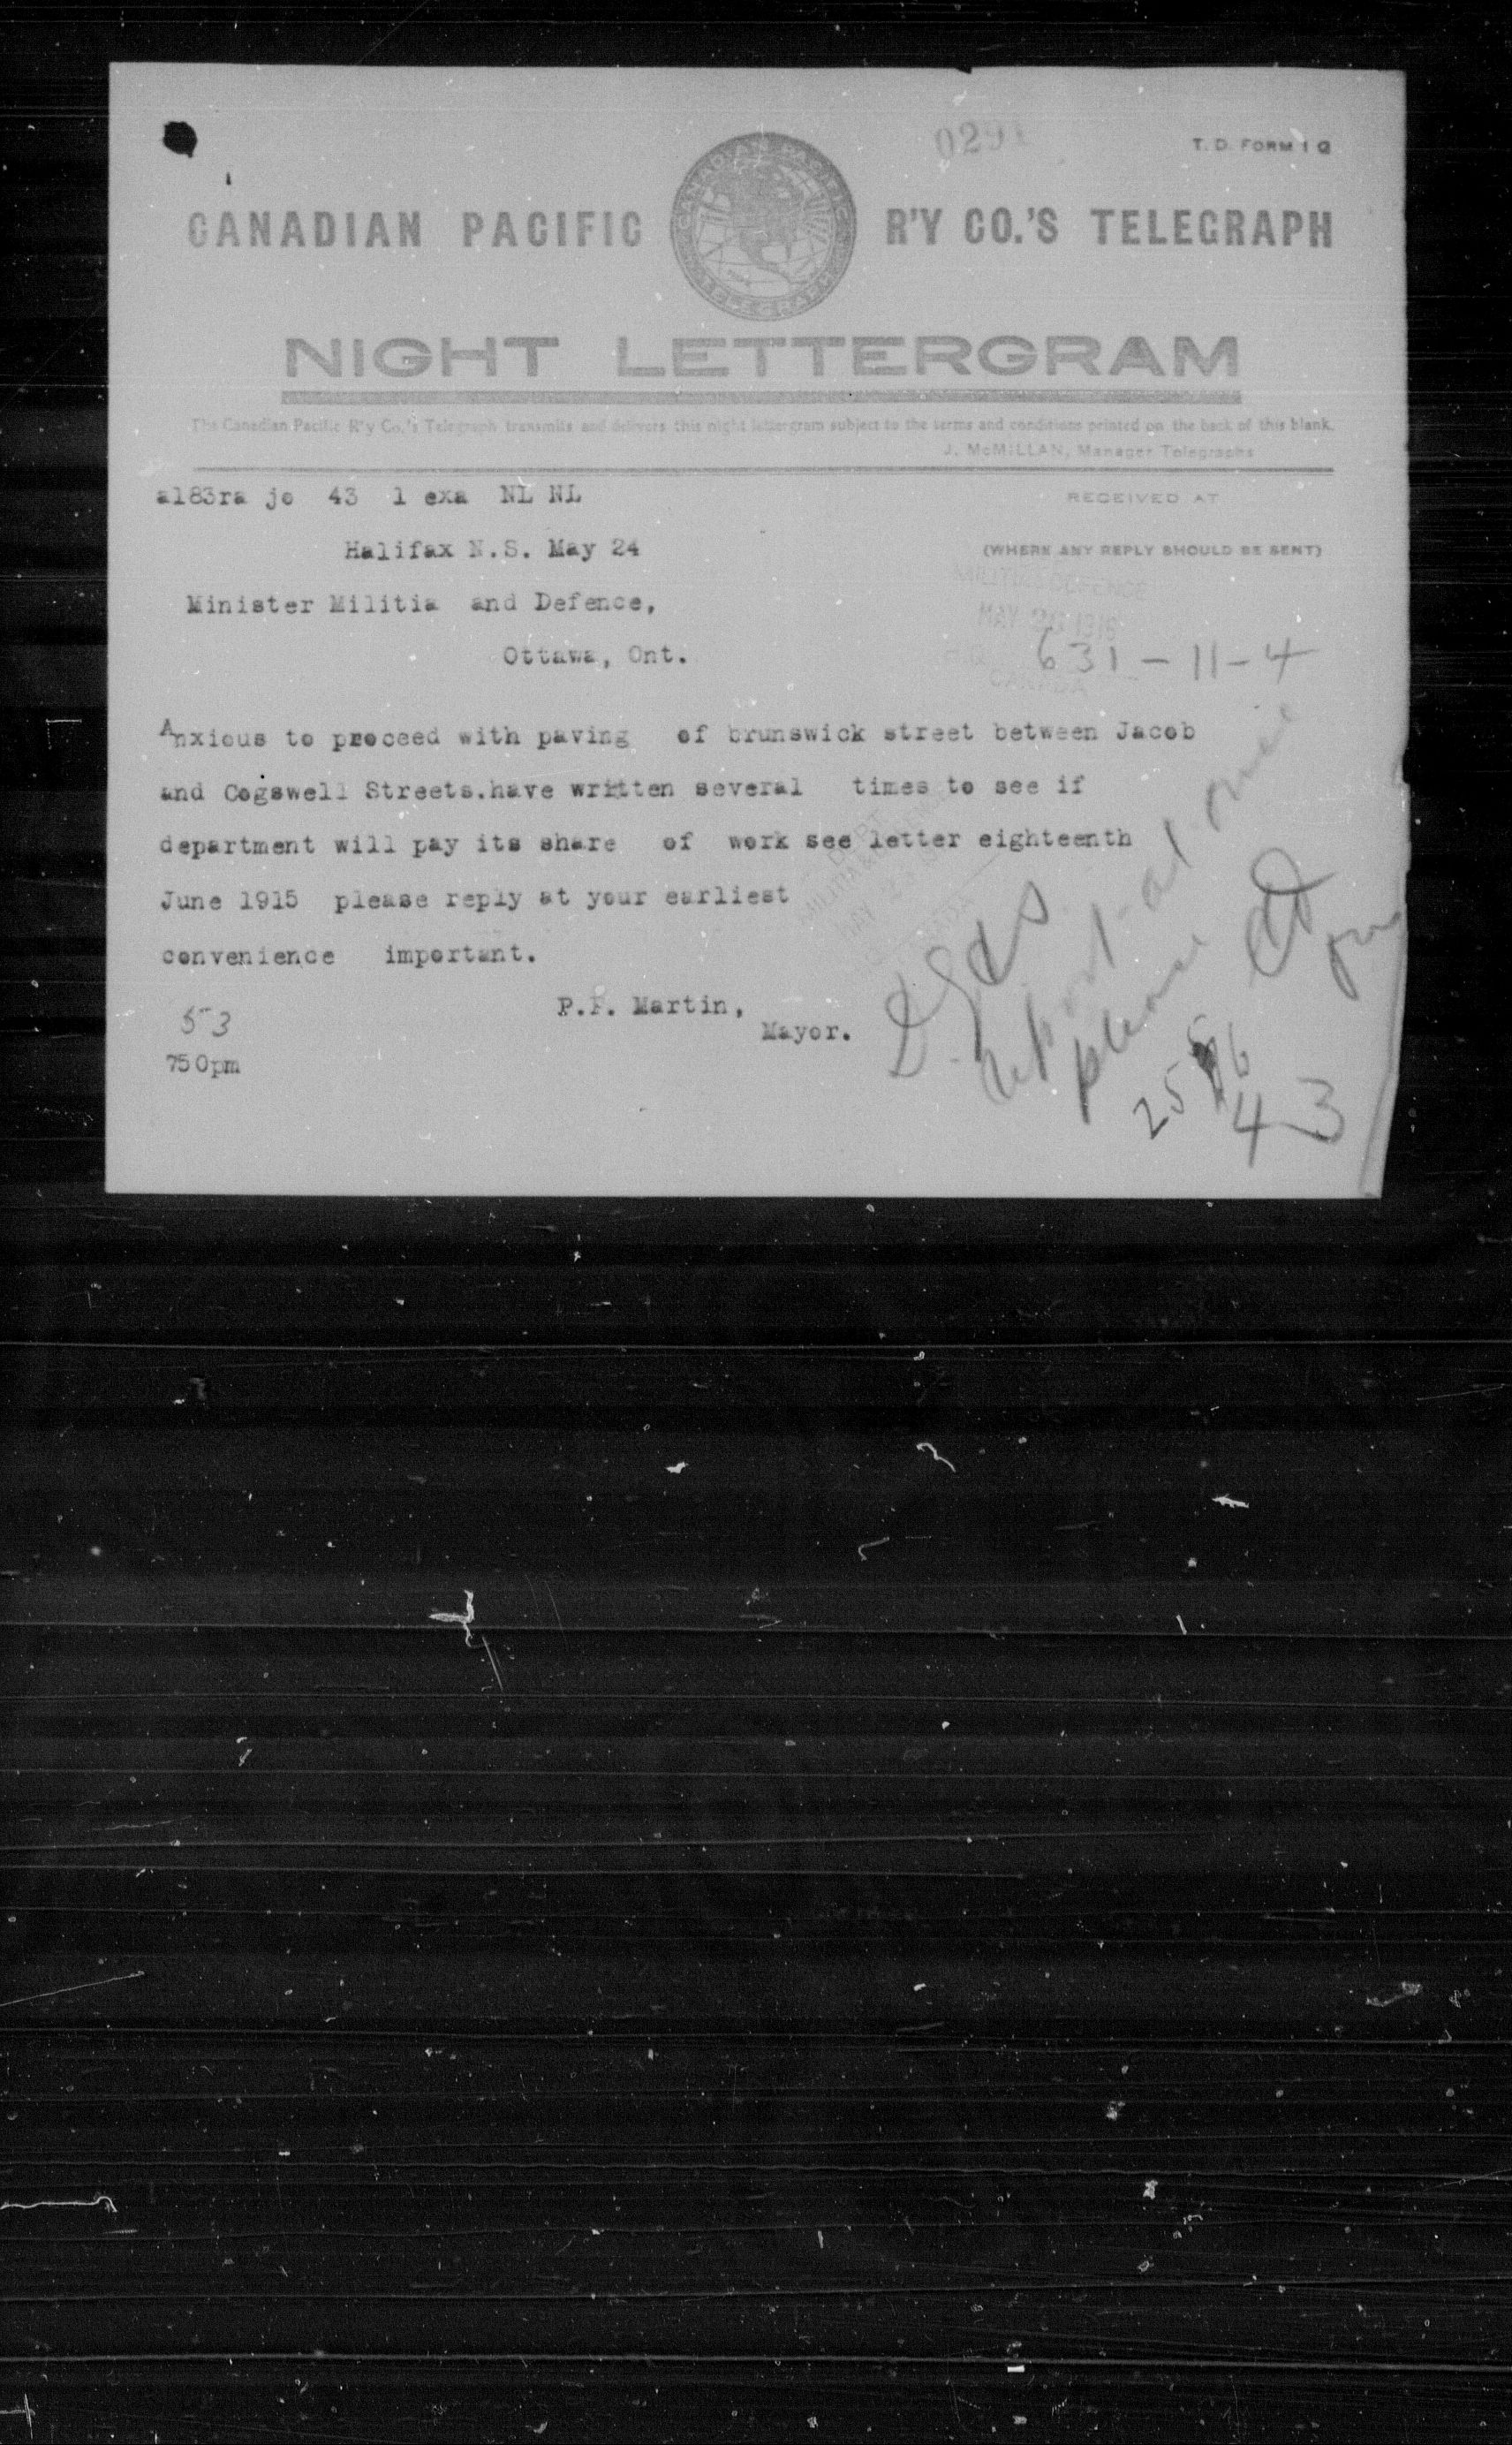 T. D. FORM 1 Q
CANADIAN PACIFIC R'Y CO.'S TELEGRAPH
NIGHT LETTERGRAM
The Canadian Pacific R'y Co.'s Telegraph transmits and delivers this night lettergram subject to the terms and conditions printed on the back of this blank.
J. McMILLAN, Manager Telegraphs
a183ra jo 43 1 exa NL NL
RECEIVED AT
Halifax N.S. May 24
(WHERE ANY REPLY SHOULD BE SENT)
MILITIA DEFENCE
Minister Militia and Defence,
MAY 1916
Ottawa, Ont.
631-11-4
CANADA
Anxious to proceed with paving of brunswick street between Jacob
and Cogswell Streets.have written several times to see if
department will pay its share of work see letter eighteenth
June 1915 please reply at your earliest
convenience important.
P.F. Martin,
Mayor.
53
750pm
report at once
please
25 5
43